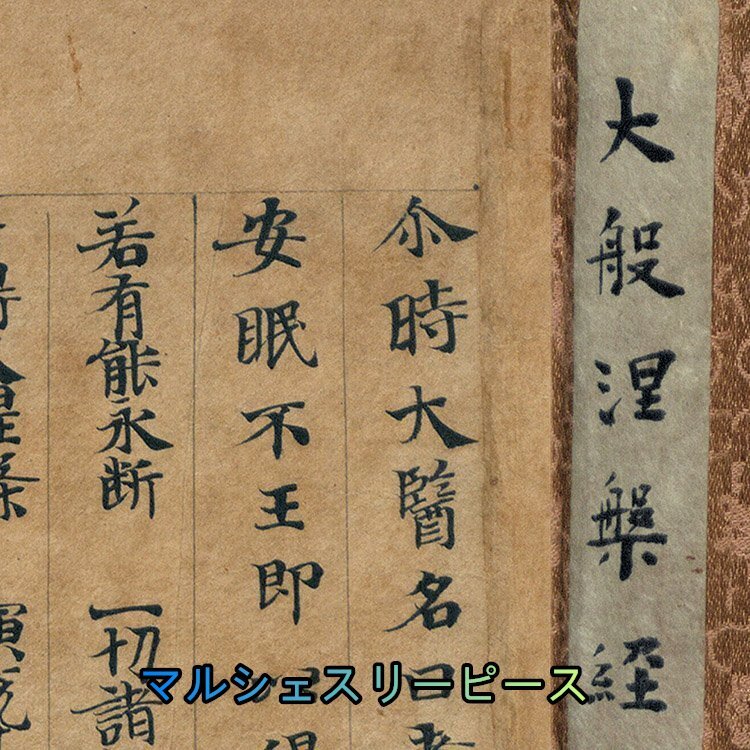 大般涅槃経
尒時大醫名曰
安眠不王即
若有能永断 一切諸
マルシェスリーピース